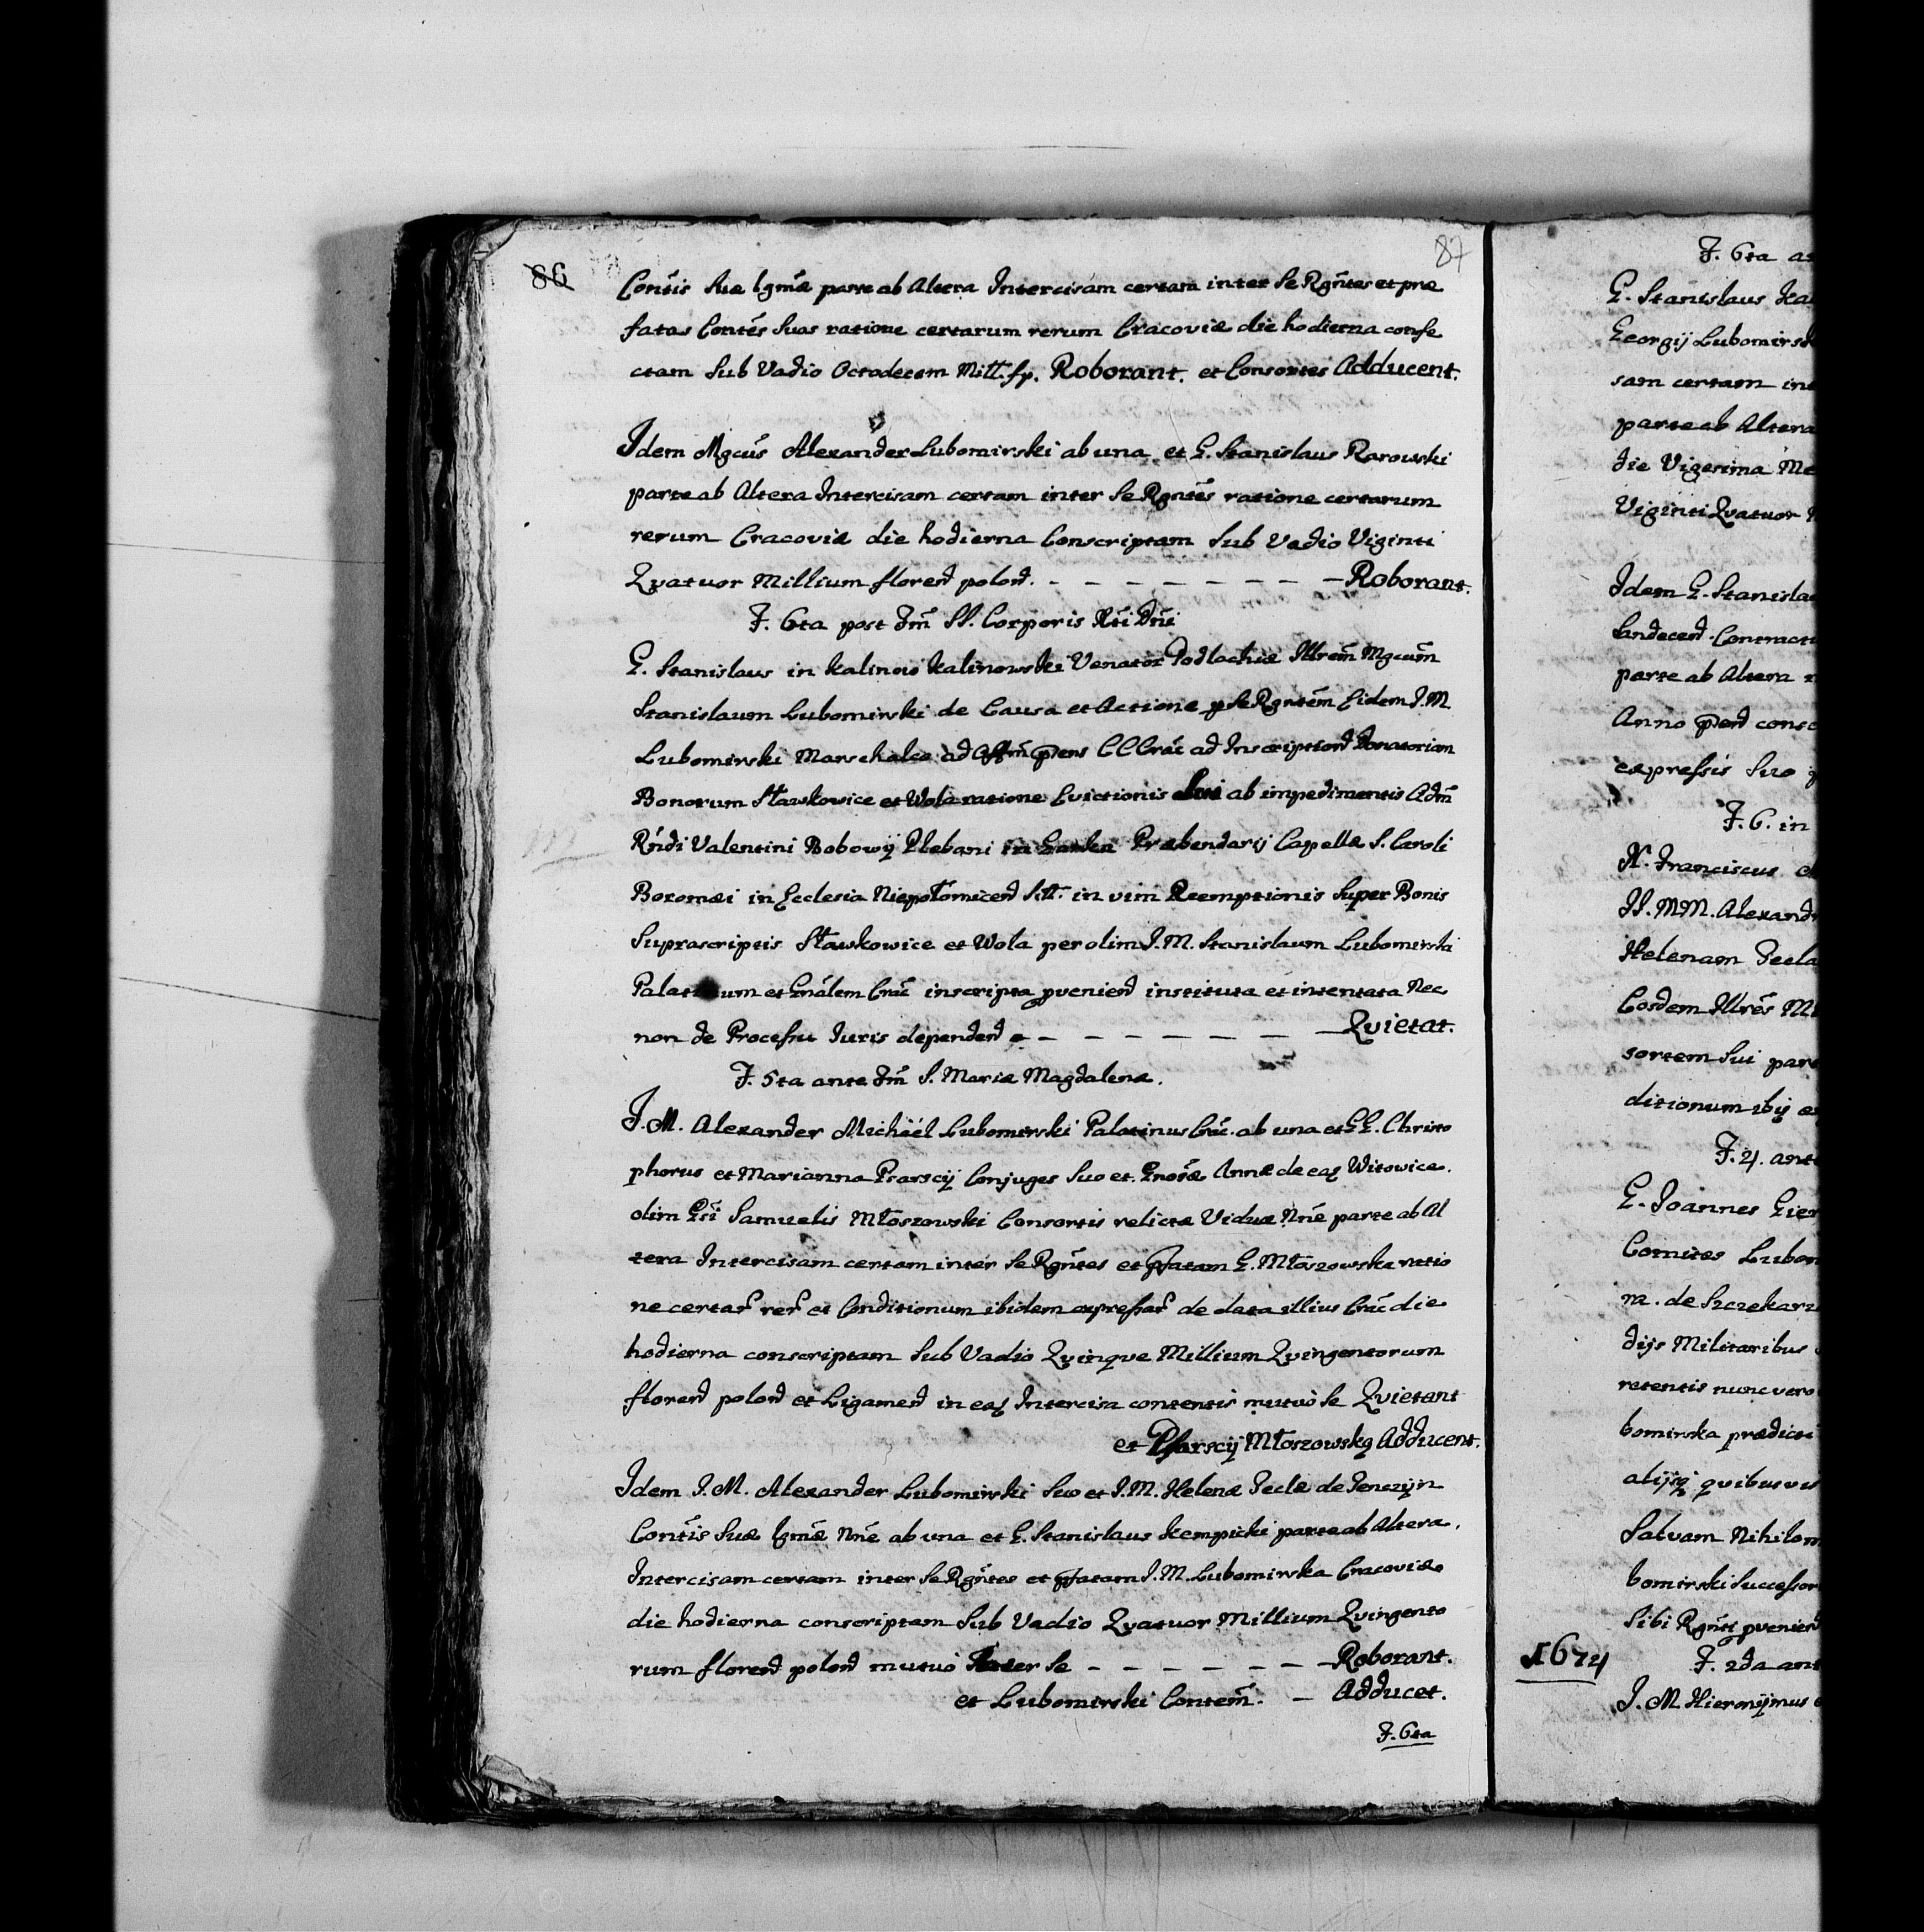 86
87
Contis Suæ lgmæ parte ab Altera Intercisam certam inter Se Rgntes et præ
fatas Contes Suas ratione certarum rerum Cracoviæ die hodierna confe
ctam Sub Vadio Octodecem Mill. fp. Roborant. et Consortes Adducent.
Idem Mgcus Alexander Lubomirski ab una et G. Stanislaus Rarowski
parte ab Altera Intercisam certam inter Se Rgntes ratione certarum
rerum Cracoviæ die hodierna Conscriptam Sub Vadio Viginti
Qvatuor Millium floren polon. - - - - - - - - Roborant.
F. 6ta post Fm SS. Corporis Xti Dni
G. Stanislaus in Kalinow Kalinowski Venator Podlachiæ Illrem Mgcum
Stanislaum Lubomirski de Causa et Actione p Se Rgntem Eidem I. M.
Lubomirski Marschalco ad pens CCCrac ad Inscription Donatoriam
Bonorum Sławkowice et Wola ratione Evictionis Sui ab impedimentis Adm
Rndi Valentini Bobowij Plebani in Præbendarij Capellæ S. Caroli
Boromæi in Ecclesia Niepołomicen Sitt. in vim Reemptionis Super Bonis
Suprascriptis Sławkowice et Wola per olim I. M. Stanislaum Lubomirski
Palatinum et Gnalem Crac inscripta pvenien instituta et intentata Nec
non de Processu Iuris dependen - - - - - - - Qvietat.
F. 5ta ante Fm S. Mariæ Magdalenæ.
I. M. Alexander Michäel Lubomirski Palatinus Crac. ab una et GG. Christo
phorus et Marianna Psarscij Conjuges Suo et Gnosæ Annæ de eaq Witowice.
olim Gsi Samuelis Młoszowski Consortis relictæ Viduæ Nne parte ab Al
tera Intercisam certam inter Se Rgntes et pfatam G. Młoszowska ratio
ne certar rer et Conditionum ibidem expressar de data illius Crac die
hodierna conscriptam Sub Vadio Qvinqve Millium Qvingentorum
floren polon et Ligamen in eaq Intercisa contentis mutuò Se Qvietant
et Psarscij Młoszowską Adducent.
Idem I. M. Alexander Lubomirski Suo et I. M. Helenæ Teclæ de Tenczijn
Contis Suæ lgmæ Nne ab una et G. Stanislaus Kempicki parte ab Altera.
Intercisam certam inter Se Rgntes et pfatam I. M. Lubomirska Cracoviæ
die hodierna conscriptam Sub Vadio Qvatuor Millium Qvingento
rum floren polon mutuo Inter Se - - - - - - Roborant.
et Lubomirski Contem. - Adducet.
F. 6ta
F. 6ta
G. Stanislaus
Georgij Lubomirsk
sam certam in
parte ab Altera
die Vigesima Me
Viginti Qvatuor
Idem G. Stanisla
Sandecen Contract
parte ab Altera
Anno pen cons
expressis Suo
F. 6. in
N. Franciscus
II. MM. Alexand
Helenam Tecla
Eosdem Illres M
sortem Sui par
ditionum ibij
F. 4. ant
G. Ioannes Gier
Comites Lubom
ra. de Szczekarz
dijs Militaribus
retentis nunc vero
bomirska prædict
alijsq quibusvis
Salvam Nihilom
bomirski Successor
Sibi Rgnti pvenien
1674
F. 2da ant
I. M. Hieronijmus